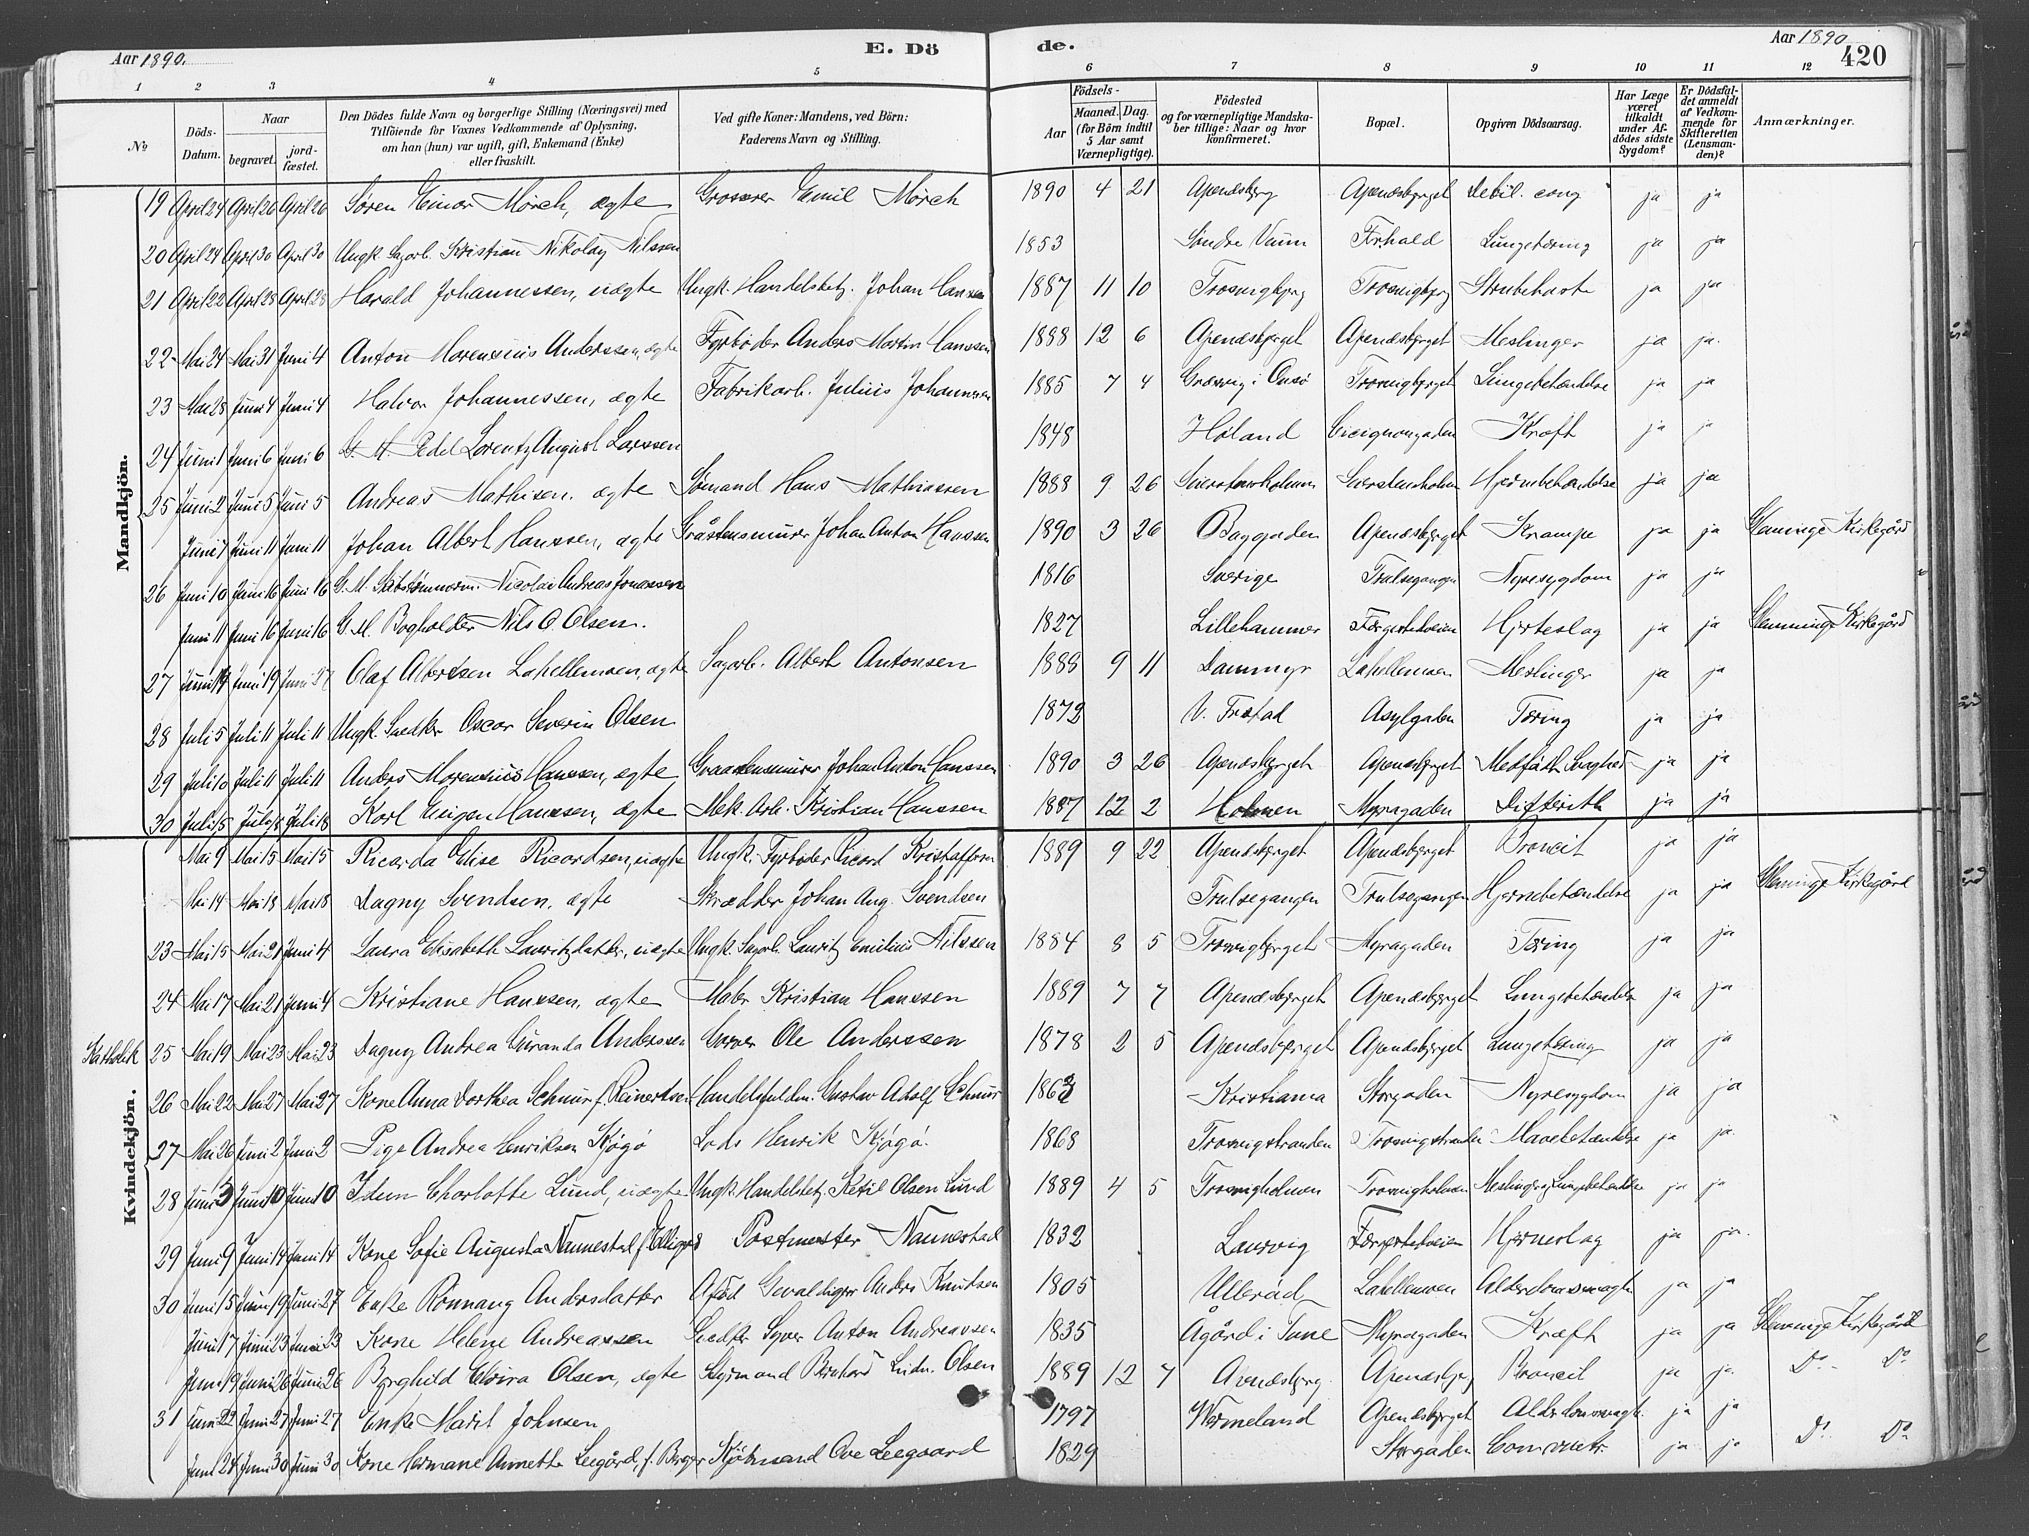 Aar 1890.
E. Dö
de.
Aar 1890
420
1 2 3 4 5 6 7 8 9 10 11 12
No
Döds-Datum.
Naar
begravet.
jord-fæstet.
Den Dödes fulde Navn og borgerlige Stilling (Næringsvei) med
Tilföiende for Voxnes Vedkommende af Oplysning,
om han (hun) var ugift, gift, Enkemand (Enke)
eller fraskilt.
Ved gifte Koner: Mandens, ved Börn:
Faderens Navn og Stilling.
Födsels-
Aar
Maaned. Dag.
(for Börn indtil
5 Aar samt
Værnepligtige).
Födested
og for værnepligtige Mandska-
ber tillige: Naar og hvor
konfirmeret.
Bopæl.
Opgiven Dödsaarsag.
Har Læge
været
tilkaldt
under Af-
dödes sidste
Sygdom?
Er Dödsfal-
det anmeldt
af Vedkom-
mende for
Skifteretten
(Lensman-
den)?
Anmærkninger.
Mandkjön.
19 April 24 April 26 April 26 Søren Einar Mørch, ægte Grosserer Emil Mørch 1890 4 21 Apenæsberg Apenæsbjerget Debil. cong ja ja
20 April 24 April 30 April 30 Ungk. Sagarb. Kristian Nikolay Nilssen 1853 Søndre Vaum Lungetæring ja ja
21 April 22 April 28 April 28 Harald Johannessen, uægte Ungk. Handelsbetj. Johan Hanssen 1887 11 10 Trosvigbjerg Trosvigbjerg Strubehoste ja ja
22 Mai 24 Mai 31 Juni 4 Anton Morensius Anderssen, ægte Fyrbøder Anders Martin Hanssen 1888 12 6 Apenæsbjerget Apenæsbjerget Meslinger ja ja
23 Mai 28 Juni 4 Juni 4 Halvor Johannessen, ægte Fabrikarb. Julius Johannessen 1885 7 4 Græsvig i Onsø Trosvigbjerget Lungebetændelse ja ja
24 Juni 1 Juni 6 Juni 6 G. M. Pedel Lorentz August Larssen 1848 Høland Cicignongaden Kræft ja ja
25 Juni 2 Juni 5 Juni 5 Andreas Mathisen, ægte Sømand Hans Mathiassen 1888 9 26 Hjernebetændelse ja ja
Juni 7 Juni 11 Juni 11 Johan Albert Hanssen, ægte Gråstensmurer Johan Anton Hanssen 1890 3 26 Baggaden Apenæsbjerget Krampe ja ja Glemminge Kirkegård
26 Juni 10 Juni 16 Juni 16 G. M. Skibstømmerm. Nicolai Andreas Jonassen 1816 Sverige Trulsegangen Nyresygdom ja ja
Juni 11 Juni 16 Juni 16 G. M. Bogholder Nils O. Olsen. 1827 Lillehammer Færgestedveien Hjerteslag ja ja Glemminge Kirkegård
27 Juni 14 Juni 19 Juni 27 Olaf Albertsen Lahellemoen, ægte Sagarb. Albert Antonsen 1888 9 11 Dammyr Lahellemoen Meslinger ja ja
28 Juli 5 Juli 11 Juli 11 Ungk. Snedker Oscar Severin Olsen 1872 V. Fredrikstad Asylgaden Tæring ja ja
29 Juli 10 Juli 11 Juli 11 Anders Morensius Hanssen, ægte Graastensmurer Johan Anton Hanssen 1890 3 26 Apenæsbjerget Apenæsbjerget Medfødt Svaghed ja ja
30 Juli 15 Juli 18 Juli 18 Karl Eugen Hanssen, ægte Mek. Arb. Kristian Hanssen 1887 12 2 Holmen Myragaden Difterith ja ja
Kvindekjön.
Mai 9 Mai 15 Mai 15 Ricarda Elise Ricardsen, uægte Ungk. Fyrbøder Ricard Kristoffersen 1889 9 22 Apenæsbjerget Apenæsbjerget Broncit ja ja
Mai 14 Mai 18 Mai 18 Dagny Svendsen, ægte Skrædder Johan Aug. Svendsen Trulsegangen Trulsegangen Hjernebetændelse ja ja Glemminge Kirkegård
23 Mai 15 Mai 21 Juni 4 Laura Elisabeth Lauritzdatter, uægte Ungk. Sagarb. Lauritz Emilius Nilssen 1884 8 5 Trosvigbjerget Myragaden Tæring ja ja
24 Mai 17 Mai 21 Juni 4 Kristiane Hanssen, ægte Maler Kristian Hanssen 1889 7 7 Apenæsbjerget Apenæsbjerget Lungebetændelse ja ja
Katholik 25 Mai 19 Mai 23 Mai 23 Dagny Andrea Anderssen Garver Ole Anderssen 1878 2 5 Apenæsbjerget Apenæsbjerget Lungetæring ja ja
26 Mai 22 Mai 27 Mai 27 Kone Anna Dorthea Schnur f. Reinertsen Handelsfuldm. Gustav Adolf Schnur Kristiania Storgaden Nyresygdom ja ja
27 Mai 26 Juni 2 Juni 2 Pige Andrea Henriksen Kjøgø Lods Henrik Kjøgø. 1868 Trosvigstranden Trosvigstranden Mavebetændelse ja ja
28 Juni 3 Juni 10 Juni 10 Idun Charlotte Lund, uægte Ungk. Handelsbetj. Ketil Olsen Lund 1889 4 5 Trosvigholmen Trosvigholmen Meslinger og Lungebetændelse ja ja
29 Juni 9 Juni 14 Juni 14 Kone Sofie Augusta Nannestad f. Postmester Nannestad 1832 Laurvig Færgestedveien Hjerneslag ja ja
30 Juni 15 Juni 19 Juni 27 Enke Rønnaug Andersdatter Afød Gevaldiger Anders Knudsen 1805 Ullerød Lahellemoen Alderdomssvaghed ja ja
Juni 17 Juni 23 Juni 23 Kone Helene Andreassen Snedker Syver Anton Andreassen 1835 Ågård i Tune Myragaden Kræft ja ja Glemminge Kirkegård
Juni 19 Juni 26 Juni 26 Byrghild Elvira Olsen, ægte Styrmand Bernhard Ludv. Olsen 1889 12 7 Apenæsberg Apenæsbjerg Broncit ja ja Do Do
31 Juni 22 Juni 27 Juni 27 Enke Marit Johnsen 1797 Wermeland Apenæsbjerget Alderdomssvagh. ja ja
Juni 24 Juni 30 Juni 30 Kone Hermane Annette Leegård, f. Berger Kjøbmand Ove Leegaard 1829 Storgaden ja ja Do Do